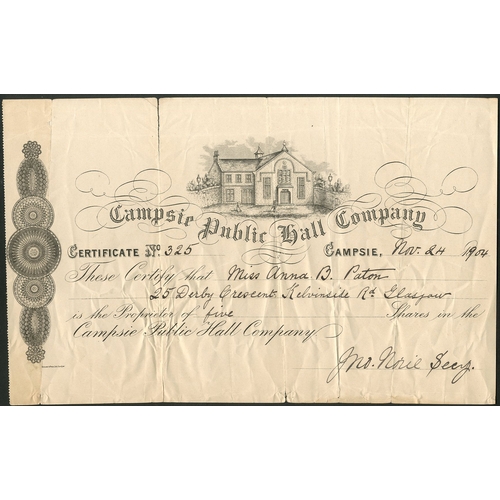 Campsie Public Hall Company
CERTIFICATE No. 325 CAMPSIE, Nov. 24 1904
These Certify that Miss Anna B. Paton
25 Derby Crescent Kelvinside Rd. Glasgow
is the Proprietor of five Shares in the
Campsie Public Hall Company
Jno. Norie Secy.